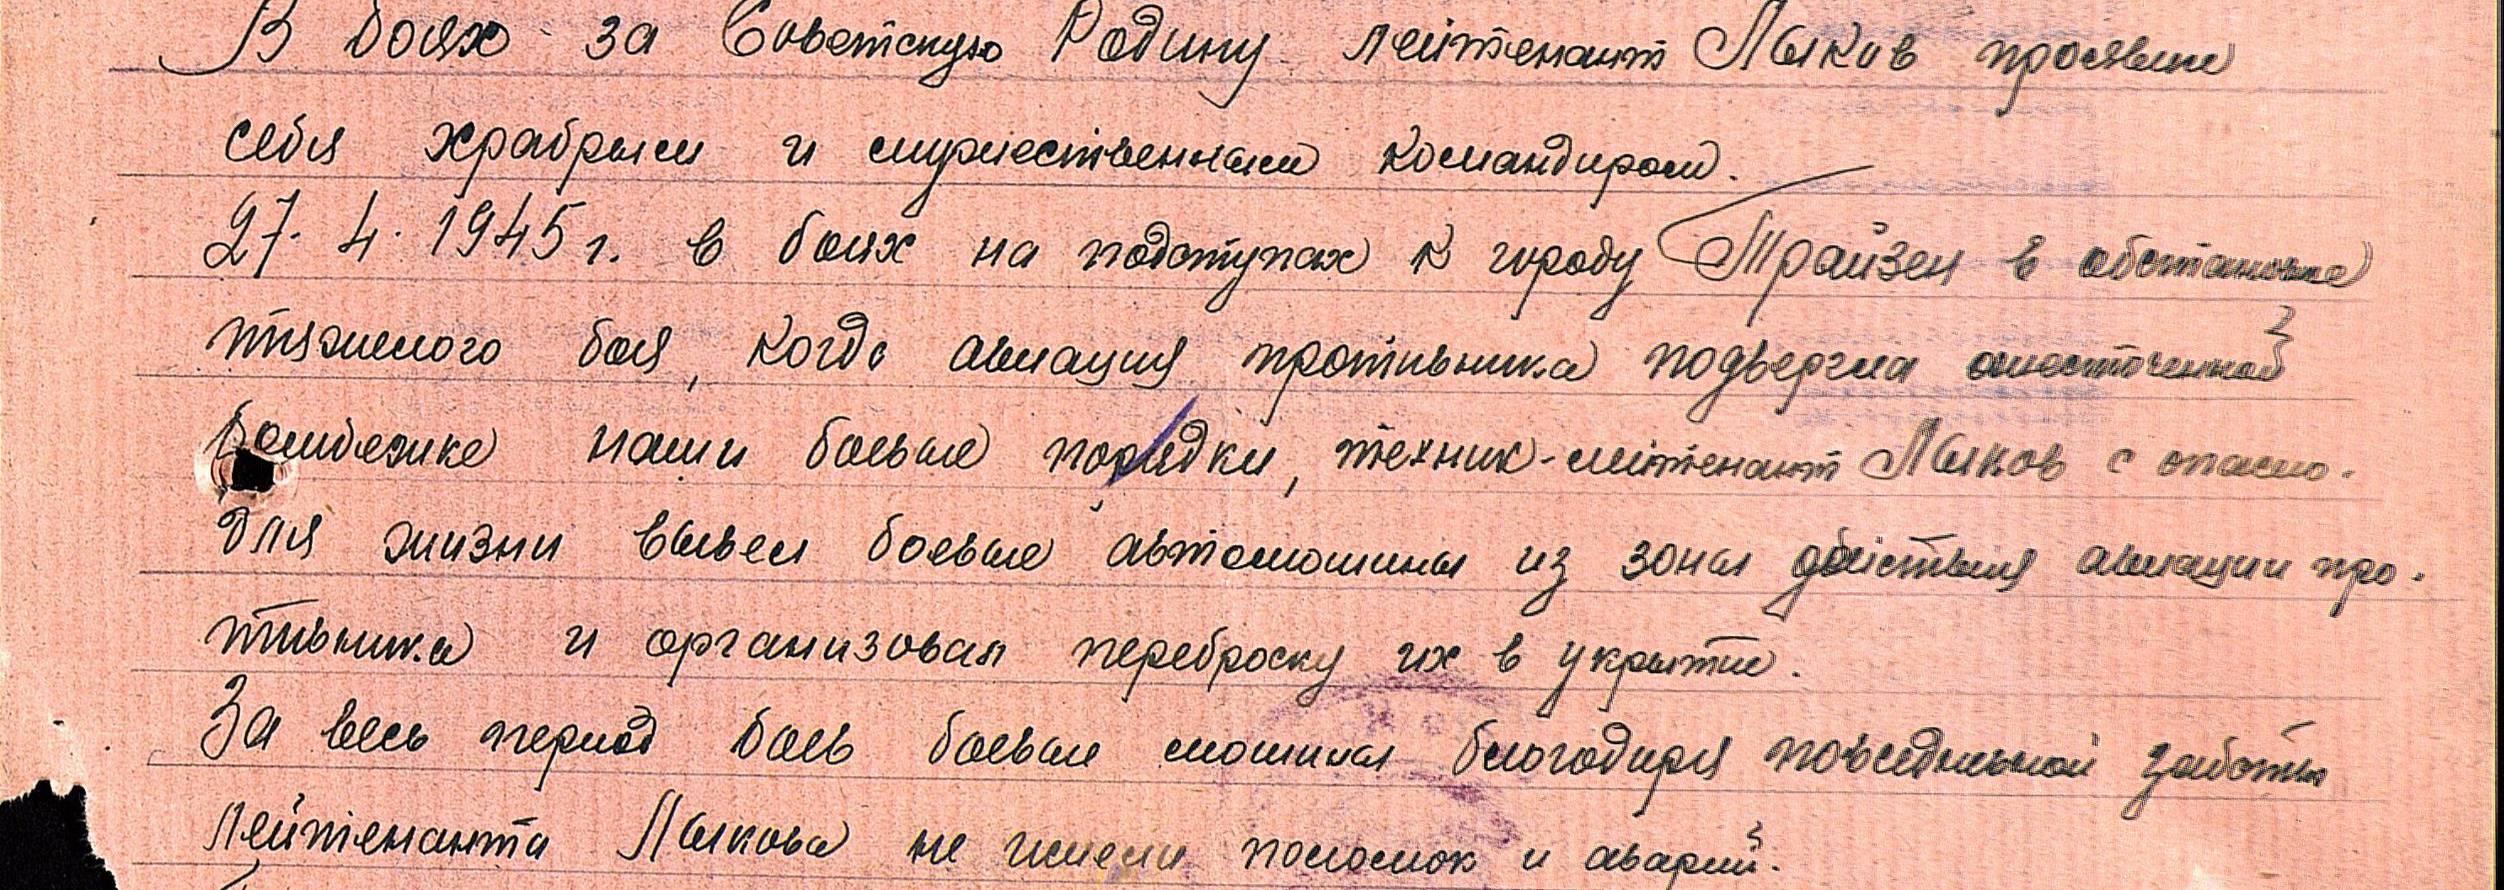 В боях за Советскую Родину лейтенант Лыков проявил
себя храбрым и мужественным командиром.
27.4.1945 г. в боях на подступах к городу Трайзен в обстановке
тяжелого боя, когда авиация противника подвергла ожесточенной
бомбежке наши боевые порядки, техник-лейтенант Лыков с опасно.
для жизни вывел боевые автомашины из зоны действия авиации про-
тивника и организовал переброску их в укрытие.
За весь период боев боевые машины благодаря повседневной заботы
лейтенанта Лыкова не имели поломок и аварий.